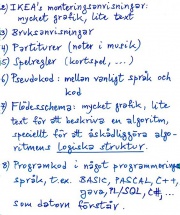 2) IKEA's monteringsanvisningar:
mycket grafik, lite text
3) Bruksanvisningar
4) Partiturer (noter i musik)
5) Spelregler (kortspel, ...)
6) Pseudokod: mellan vanligt språk och
kod
7) Flödesschema: mycket grafik, lite
text för att beskriva en algoritm,
speciellt för att åskådliggöra algo-
ritmens Logiska struktur.
8) Programkod i något programmerings
språk, t.ex. BASIC, PASCAL, C++,
Java, PL/SQL, C#, ...
som datorn förstår.